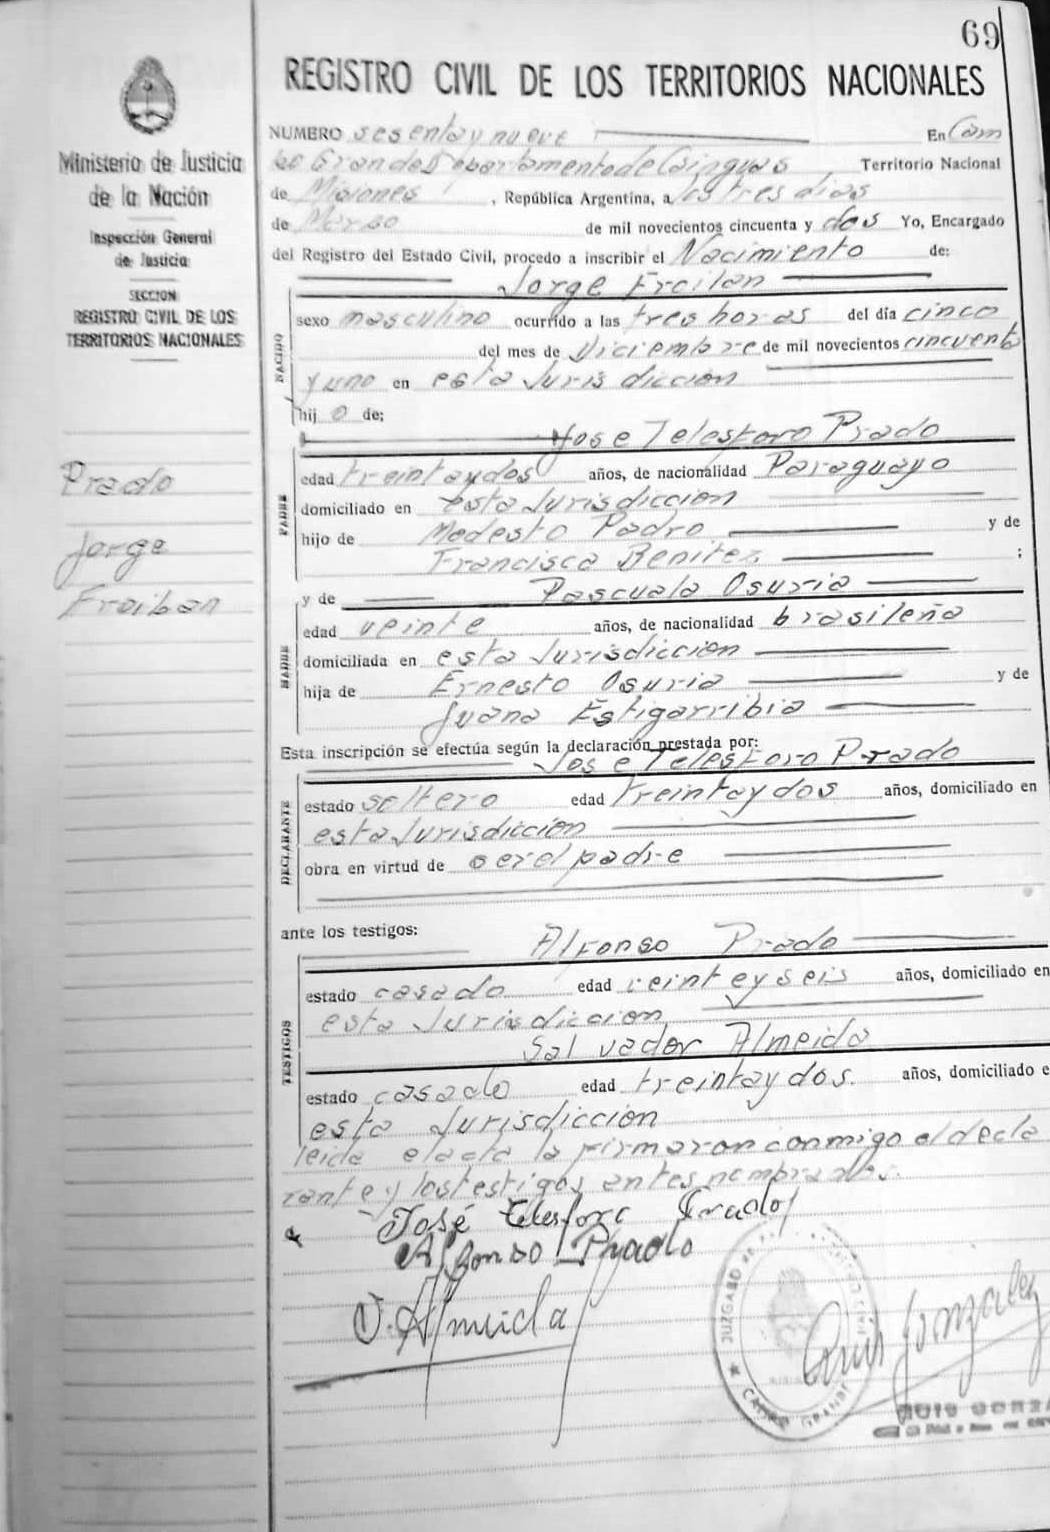 69
REGISTRO CIVIL DE LOS TERRITORIOS NACIONALES
Ministerio de Justicia
de la Nación
Inspección General
de Justicia
SECCION
REGISTRO CIVIL DE LOS
TERRITORIOS NACIONALES
Prado
Jorge
Froilan
NUMERO sesenta y nueve En Cam
po Grande Departamento de Cainguas Territorio Nacional
de Misiones, República Argentina, a los tres dias
de Marzo de mil novecientos cincuenta y dos Yo, Encargado
del Registro del Estado Civil, procedo a inscribir el Nacimiento de:
Jorge Froilan
NACIDO
sexo masculino ocurrido a las tres horas del día cinco
del mes de Diciembre de mil novecientos cincuenta
y uno en esta Jurisdiccion
hijo de:
Jose Telesforo Prado
PADRE
edad treinta y dos años, de nacionalidad Paraguayo
domiciliado en esta Jurisdiccion
hijo de Modesto Padro y de
Francisca Benitez ;
y de Pascuala Osuria
MADRE
edad veinte años, de nacionalidad brasileña
domiciliada en esta Jurisdiccion
hija de Ernesto Osuria y de
Juana Estigarribia
Esta inscripción se efectúa según la declaración prestada por:
Jose Telesforo Prado
DECLARANTE
estado soltero edad treinta y dos años, domiciliado en
esta Jurisdiccion
obra en virtud de ser el padre
ante los testigos:
Alfonso Prado
TESTIGOS
estado casado edad veinte y seis años, domiciliado en
esta Jurisdiccion
Salvador Almeida
estado casado edad treinta y dos. años, domiciliado e
esta Jurisdiccion
leida el acta la firmaron conmigo el decla
rante y los testigos antes nombrados.
José Telesforo Prado
Alfonso Prado
Almeida
JUZGADO DE
CAMPO GRANDE
Luis Gonzalez